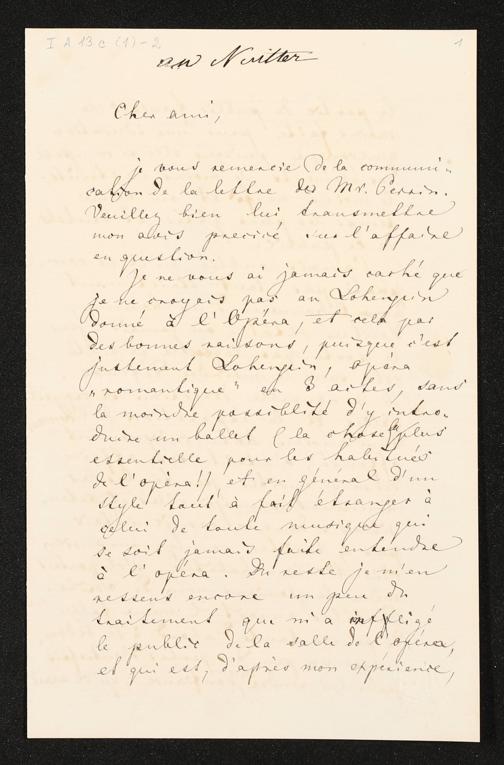 I A 13 c (1) - 2
1
an Nuitter
Cher ami,
je vous remercie de la communi-
cation de la lettre de Mr. Perrin.
Veuillez bien lui transmettre
mon avis precicé sur l'affaire
en question.
Je ne vous ai jamais caché que
je ne croyais pas au Lohengrin
donné à l'Opéra, et cela par
des bonnes raisons, puisque c'est
justement Lohengrin, opéra
"romantique" en 3 actes, sans
la moindre possiblité d'y intro-
duire un ballet (la chose la plus
essentielle pour les habitués
de l'opéra!) et en général d'un
style tout à fait étranger à
celui de toute musique qui
se soit jamais faite entendre
à l'opéra. Du reste je m'en
ressens encore un peu du
traitement que m'a infligé
le public de la salle de l'opéra,
et qui est, d'après mon expérience,